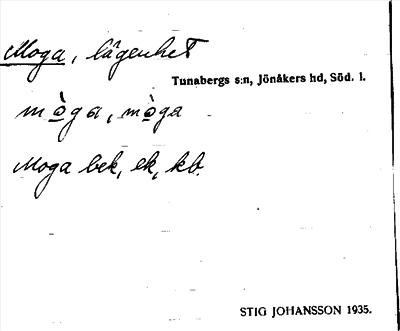 Moga, lägenhet
Tunabergs s:n, Jönåkers hd, Söd. l.
mò̲ga, mò̲ga
Moga bek, ek, kb.
STIG JOHANSSON 1935.